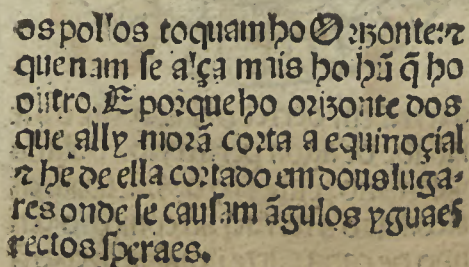 os pollos toquam ho Orizonte: ⁊
que nam se alça mais ho hũ q̃ ho
outro. E porque ho orizonte dos
que ally morã corta a equinoçial
⁊ he de ella cortado em dous luga⸗
res onde se causam ãgulos yguaes
rectos speraes.